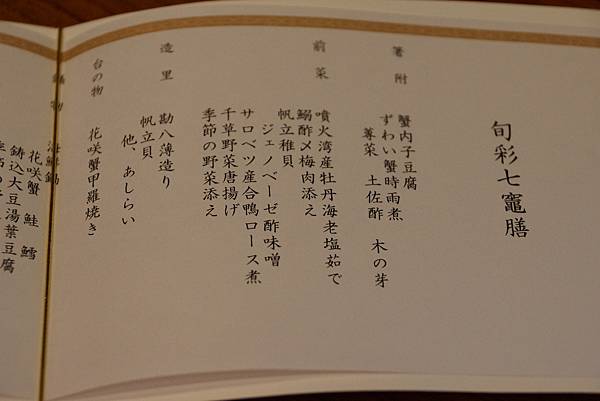 旬彩七竈膳
箸附
蟹内子豆腐
ずわい蟹時雨煮
蓴菜 土佐酢 木の芽
前菜
噴火湾産牡丹海老塩茹で
鰯酢〆梅肉添え
帆立稚貝
ジェノベーゼ酢味噌
サロベツ産合鴨ロース煮
千草野菜唐揚げ
季節の野菜添え
造里
勘八薄造り
帆立貝
他、あしらい
台の物
花咲蟹甲羅焼き
海鮮鍋
花咲蟹 鮭 鱈
鋳込大豆湯葉豆腐